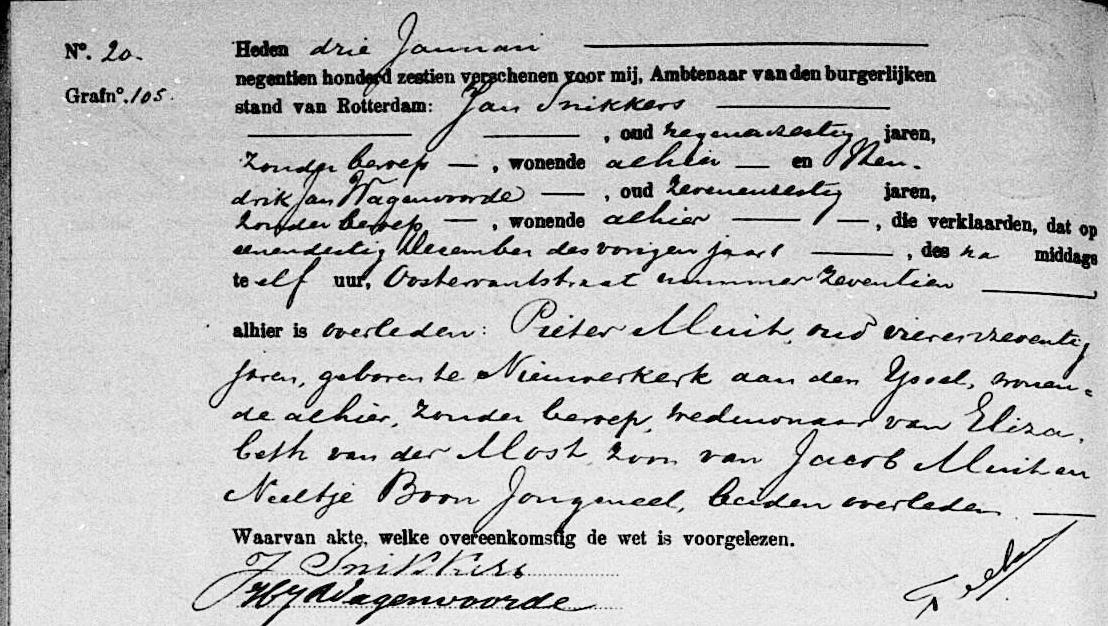 Nº. 20. Heden drie Januari
negentien honderd zestien verschenen voor mij, Ambtenaar van den burgerlijken
Grafnº. 105. stand van Rotterdam: Jan Snikkers
, oud negenenzestig jaren,
zonder beroep, wonende alhier en Hen-
drik Jan Wagenvoorde, oud zevenenzestig jaren,
zonder beroep, wonende alhier, die verklaarden, dat op
eenendertig December des vorigen jaars, des na middags
te elf uur, Oostervantstraat nummer zeventien,
alhier is overleden: Pieter Muit, oud vierenzeventig
jaren, geboren te Nieuwerkerk aan den Yssel, wonen=
de alhier, zonder beroep, weduwnaar van Eliza-
beth van der Most, zoon van Jacob Muit en
Neeltje Boon Jongeneel, beiden overleden.
Waarvan akte, welke overeenkomstig de wet is voorgelezen.
J Snikkers
HJ Wagenvoorde